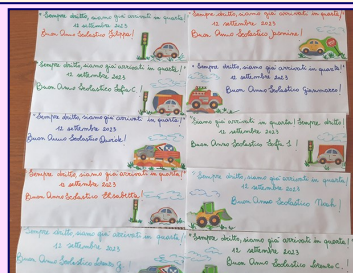 "Sempre dritto, siamo già arrivati in quarta!
12 settembre 2023
Buon Anno Scolastico Filippo!
"Sempre dritto, siamo già arrivati in quarta!
12 settembre 2023
Buon Anno Scolastico Jasmine!
"Sempre dritto, siamo già arrivati in quarta!"
12 settembre 2023
Buon Anno Scolastico Sofia C.!
"Sempre dritto, siamo già arrivati in quarta!"
12 settembre 2023
Buon Anno Scolastico
"Sempre dritto, siamo già arrivati in quarta!
12 settembre 2023
Buon Anno Scolastico
"Siamo già arrivati in quarta! Sempre dritto!
12 settembre 2023
Buon Anno Scolastico Sofia S!
"Sempre dritto, siamo già arrivati in quarta!
12 settembre 2023
Buon Anno Scolastico Elisabetta!
"Sempre dritto, siamo già arrivati in quarta!
12 settembre 2023
Buon Anno Scolastico Noah!
Sempre dritto, siamo già arrivati in quarta!
12 settembre 2023
Buon Anno Scolastico
"Sempre dritto, siamo già arrivati in quarta!
12 settembre 2023
Buon Anno Scolastico Lorenzo C.!